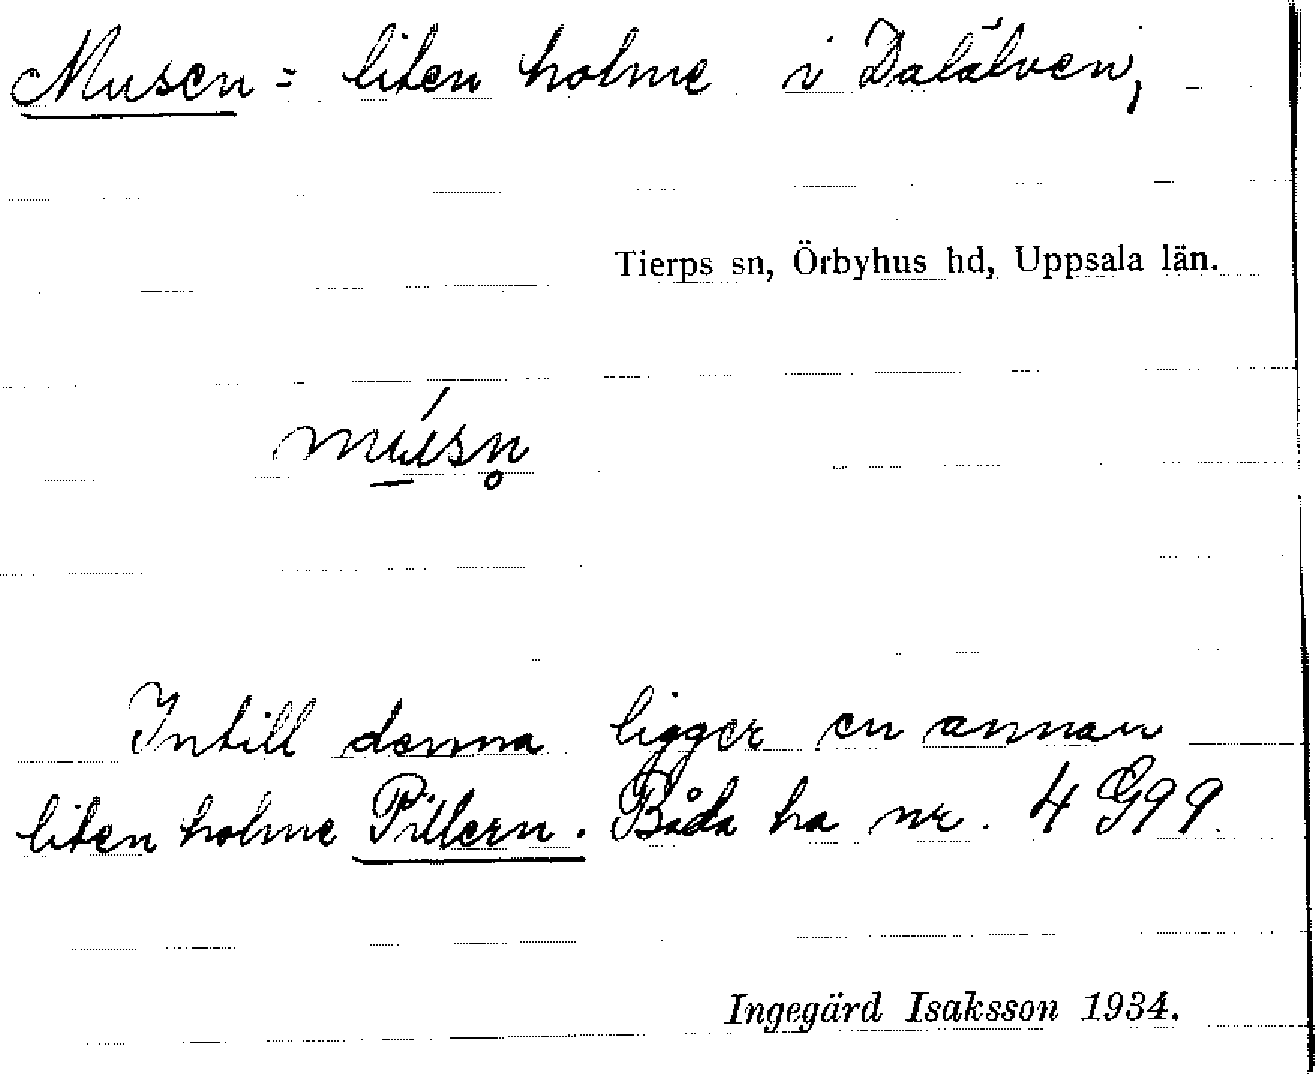 Musen = liten holme i Dalälven,
Tierps sn, Örbyhus hd, Uppsala län.
mu̱´sn̥
Intill denna ligger en annan
liten holme Pillern. Båda ha nr. 4 G99.
Ingegärd Isaksson 1934.